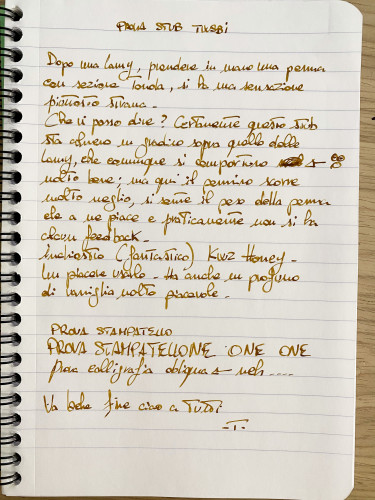 PROVA STUB TWSBI
Dopo una Lamy, prendere in mano una penna
con sezione tonda, si ha una sensazione
piuttosto strana.
Che vi posso dire? Certamente questo stub
sta almeno un gradino sopra quello delle
Lamy, che comunque si comportano
molto bene; ma qui il pennino scorre
molto meglio, si sente il peso della penna
che a me piace e praticamente non si ha
alcun feedback.
Inchiostro (fantastico) KWZ Honey.
Un piacere usarlo. Ha anche un profumo
di vaniglia molto piacevole.
PROVA STAMPATELLO
PROVA STAMPATELLONE ONE ONE
Prova calligrafia obliqua meh....
Va bene fine ciao a TUTTI
-T-